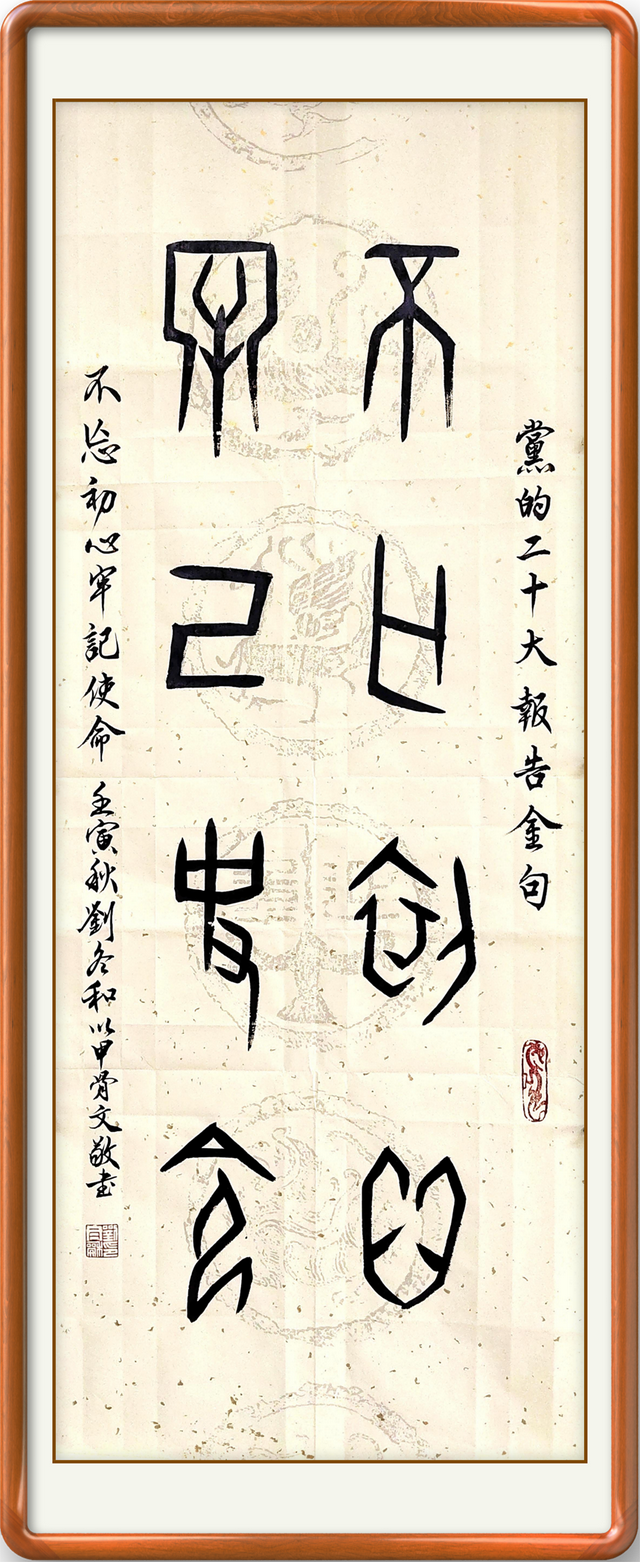 黨的二十大報告金句
不忘初心
牢記使命
不忘初心牢記使命 壬寅秋劉冬和以甲骨文敬書